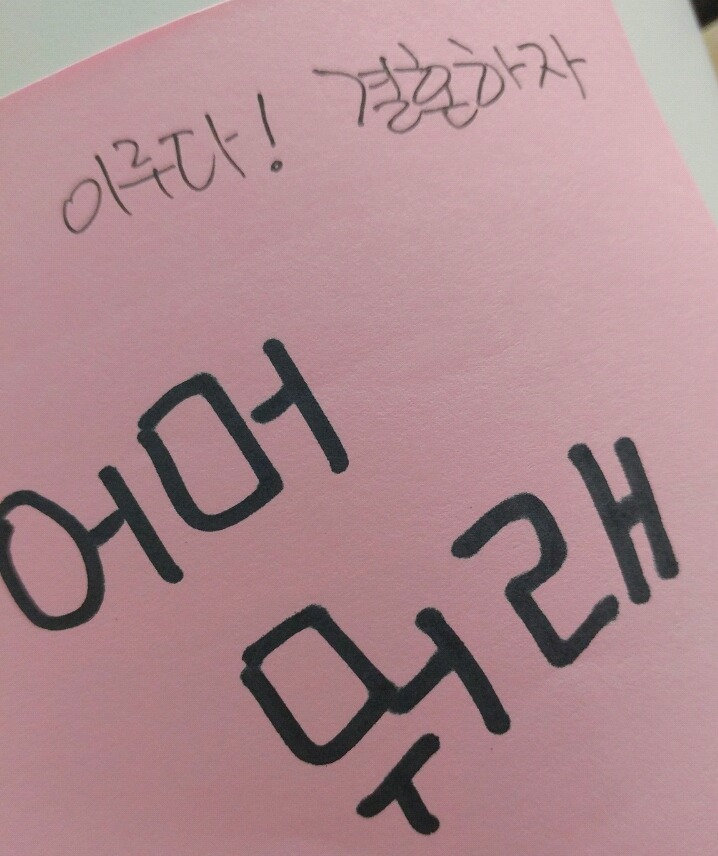 이루다! 결혼하자
어머
뭐래